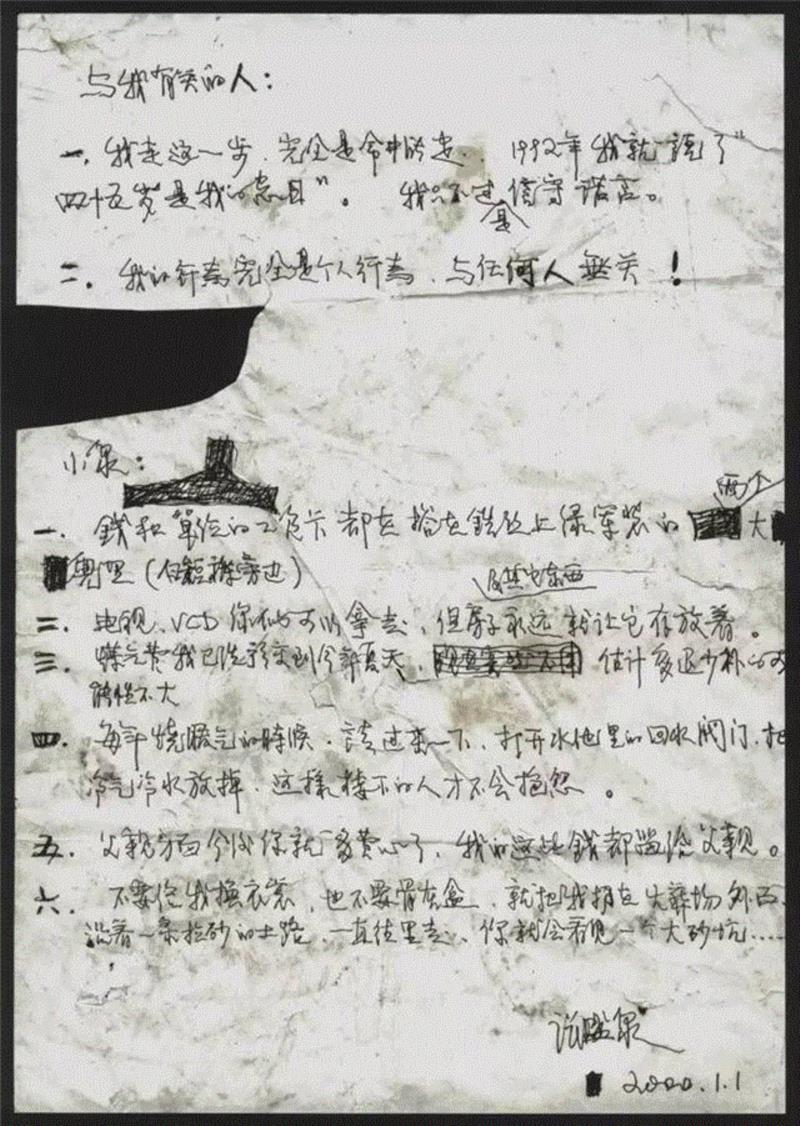 与我有关的人：
一. 我走这一步. 完全是命中所定. 1992年我就"说了"
四十五岁是我的忌日"。 我只不过是信守诺言。
二. 我的行為完全是个人行為. 与任何人無关！
小泉：
一. 錢和單位的工资卡都在搭在铁丝上绿军装的两个大
兜里（
及其它东西
二. 电视、VCD你们可以拿去，但房子永远就让它存放着。
三. 煤气费我已洗预交到今年夏天， 估计多退少补的可
能性不大
四. 每年烧暖气的時候. 請过来一下、打开水池里的回水阀门. 把
冷气冷水放掉. 这樣楼下的人才不会抱怨。
五. 父親方面今後你就多费心了，我的这些錢都留给父親。
六. 不要给我换衣裳，也不要骨灰盒. 就把我捐在火葬场外面.
沿着一条拉砂的土路. 一直往里走. 你就会看见一个大砂坑.....
2000.1.1